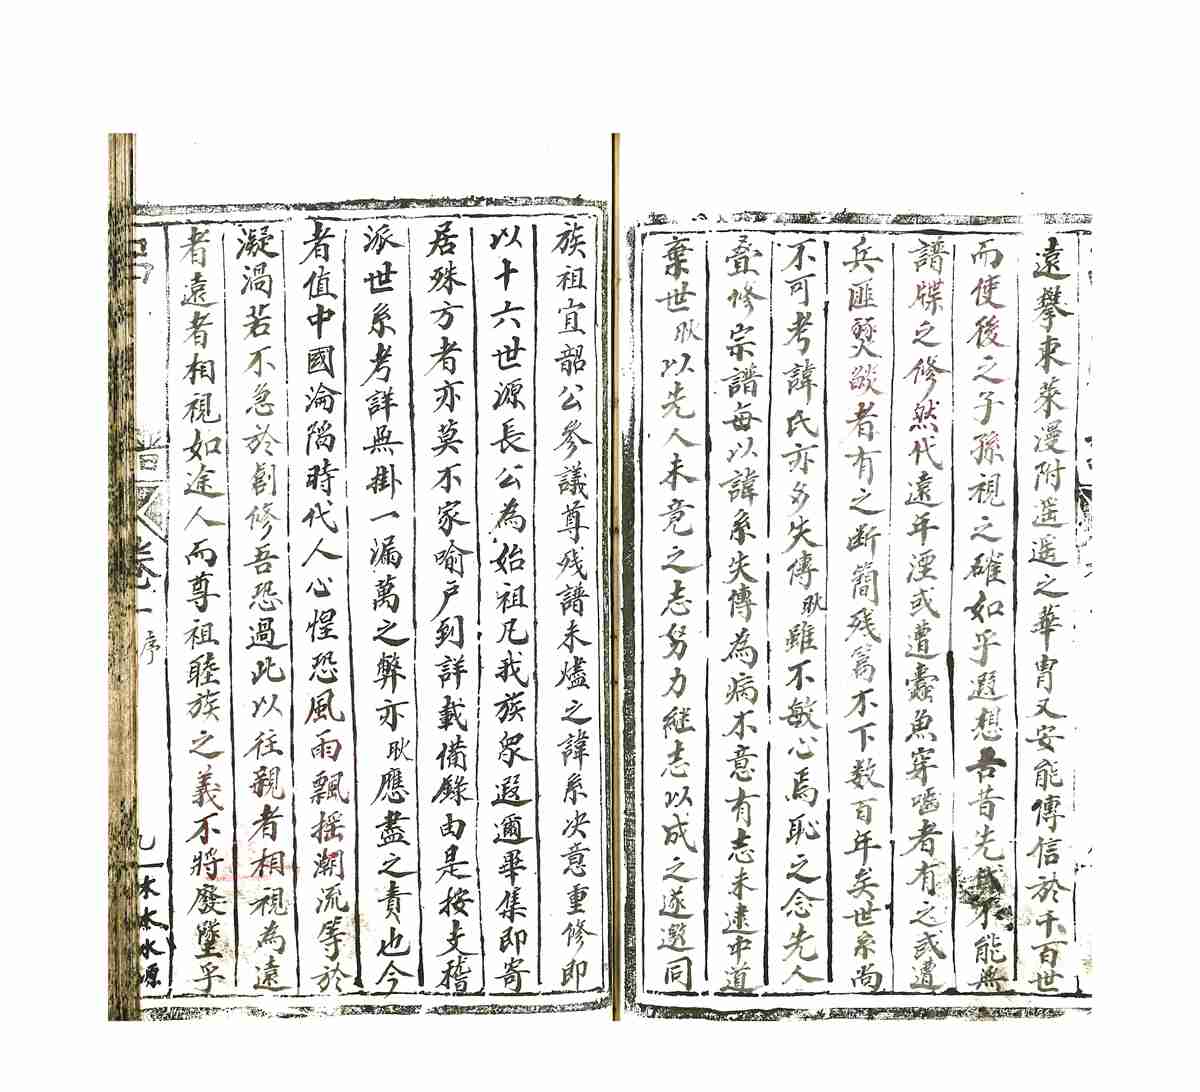 遠攀東萊漫附遥遥之華胄又安能傳信於千百世
而使後之子孫視之確如乎遐想吾昔先哉不能無
譜牒之修然代遠年湮或遭蠹魚穿嚙者有之或遭
兵匪燹燄者有之断簡残篇不下数百年矣世系尚
不可考諱氏亦多失傳耿雖不敏心焉恥之念先人
叠修宗譜每以諱系失傳為病不意有志未逮中道
棄世耿以先人未竟之志努力継志以成之遂邀同
族祖宜韶公參議尊残譜未燼之諱系决意重修即
以十六世源長公為始祖凡我族衆遐邇畢集即寄
居殊方者亦莫不家喻戶到詳載備錄由是按支稽
派世系考詳無掛一漏萬之弊亦耿應盡之責也今
者值中國淪陷時代人心惶恐風雨飄摇潮流等於
凝渦若不急於創修吾恐過此以往親者相視為遠
者遠者相視如途人而尊祖睦族之義不將廢墜乎
譜 卷一 序 九 木本水源